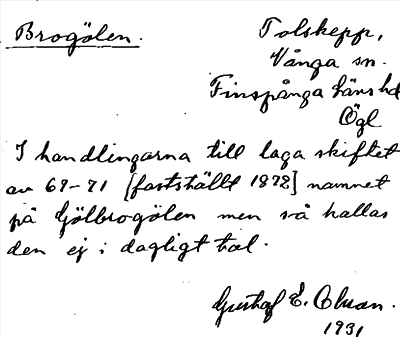 Brogölen.
Tolskepp,
Vånga sn.
Finspånga läns hd
Ögl
I handlingarna till laga skiftet
av 69-71 [fastställt 1872] namnet
på Gölbrogölen men så kallas
den ej i dagligt tal.
Gustaf E.
1931